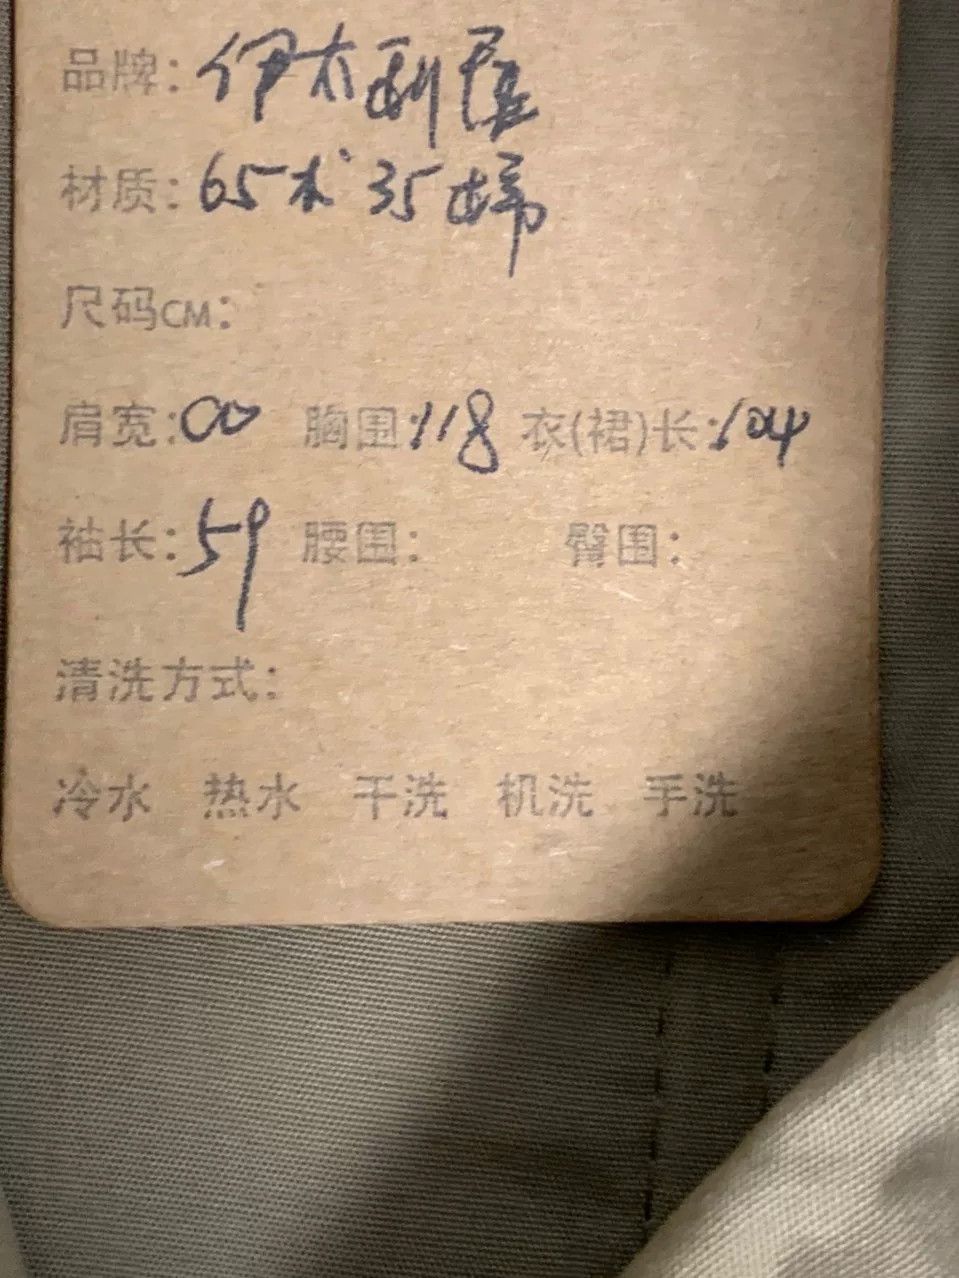 品牌：伊太利屋
材质：65木 35绵
尺码CM：
肩宽：00 胸围：118 衣(裙)长：104
袖长：59 腰围： 臀围：
清洗方式：
冷水 热水 干洗 机洗 手洗